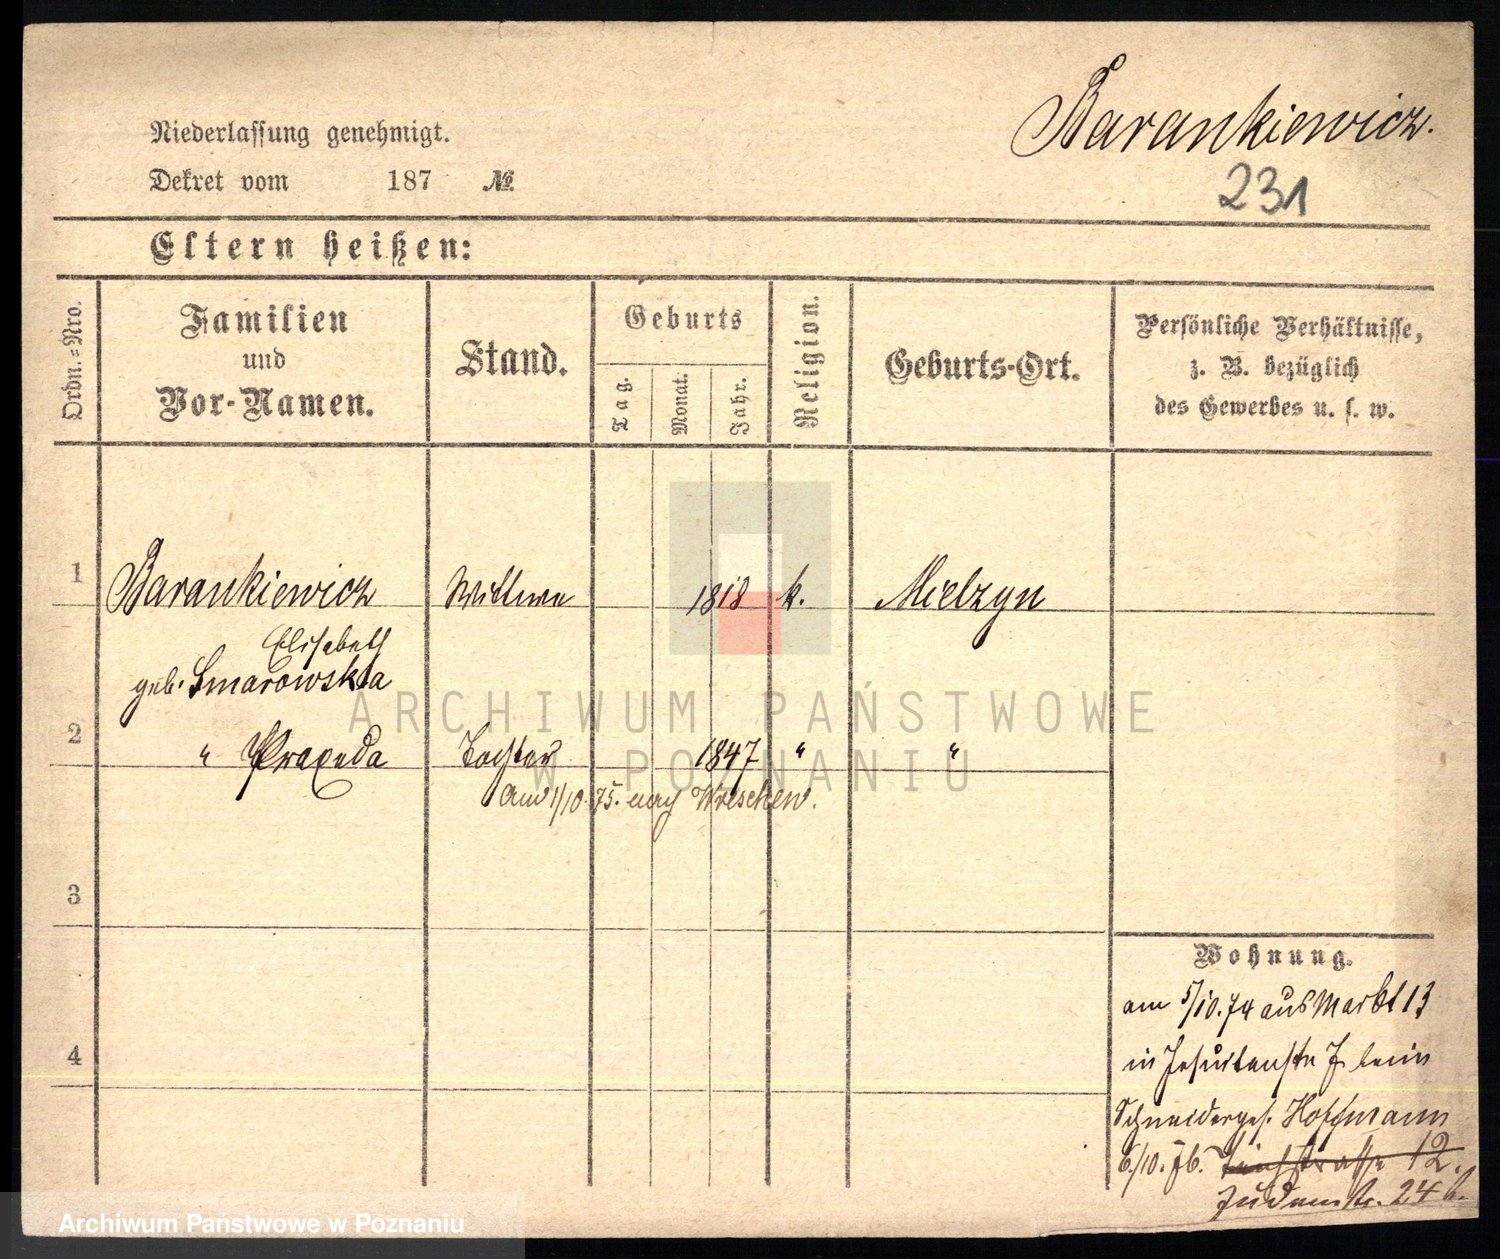 Barankiewicz.
231
Niederlassung genehmigt.
Dekret vom 187 №
Eltern heißen:
Ordn.=Nro.
Familien
und
Vor-Namen.
Stand.
Geburts
Tag.
Monat.
Jahr.
Religion.
Geburts-Ort.
Persönliche Verhältnisse,
z. B. bezüglich
des Gewerbes u. s. w.
1 Barankiewicz Wittwe 1818 k. Mielzyn
Elisabeth
geb. Smarowska
2 " Praxeda Tochter 1847 " "
1/10. 75. nach Wreschen.
3
4
Wohnung.
am 5/10. 74 aus Markt 13
in Jesuitenstr 7 beim
Schneiderges. Hoffmann
6/10. 76. 12.
Judenstr. 24
ARCHIWUM PAŃSTWOWE
W POZNANIU
Archiwum Państwowe w Poznaniu